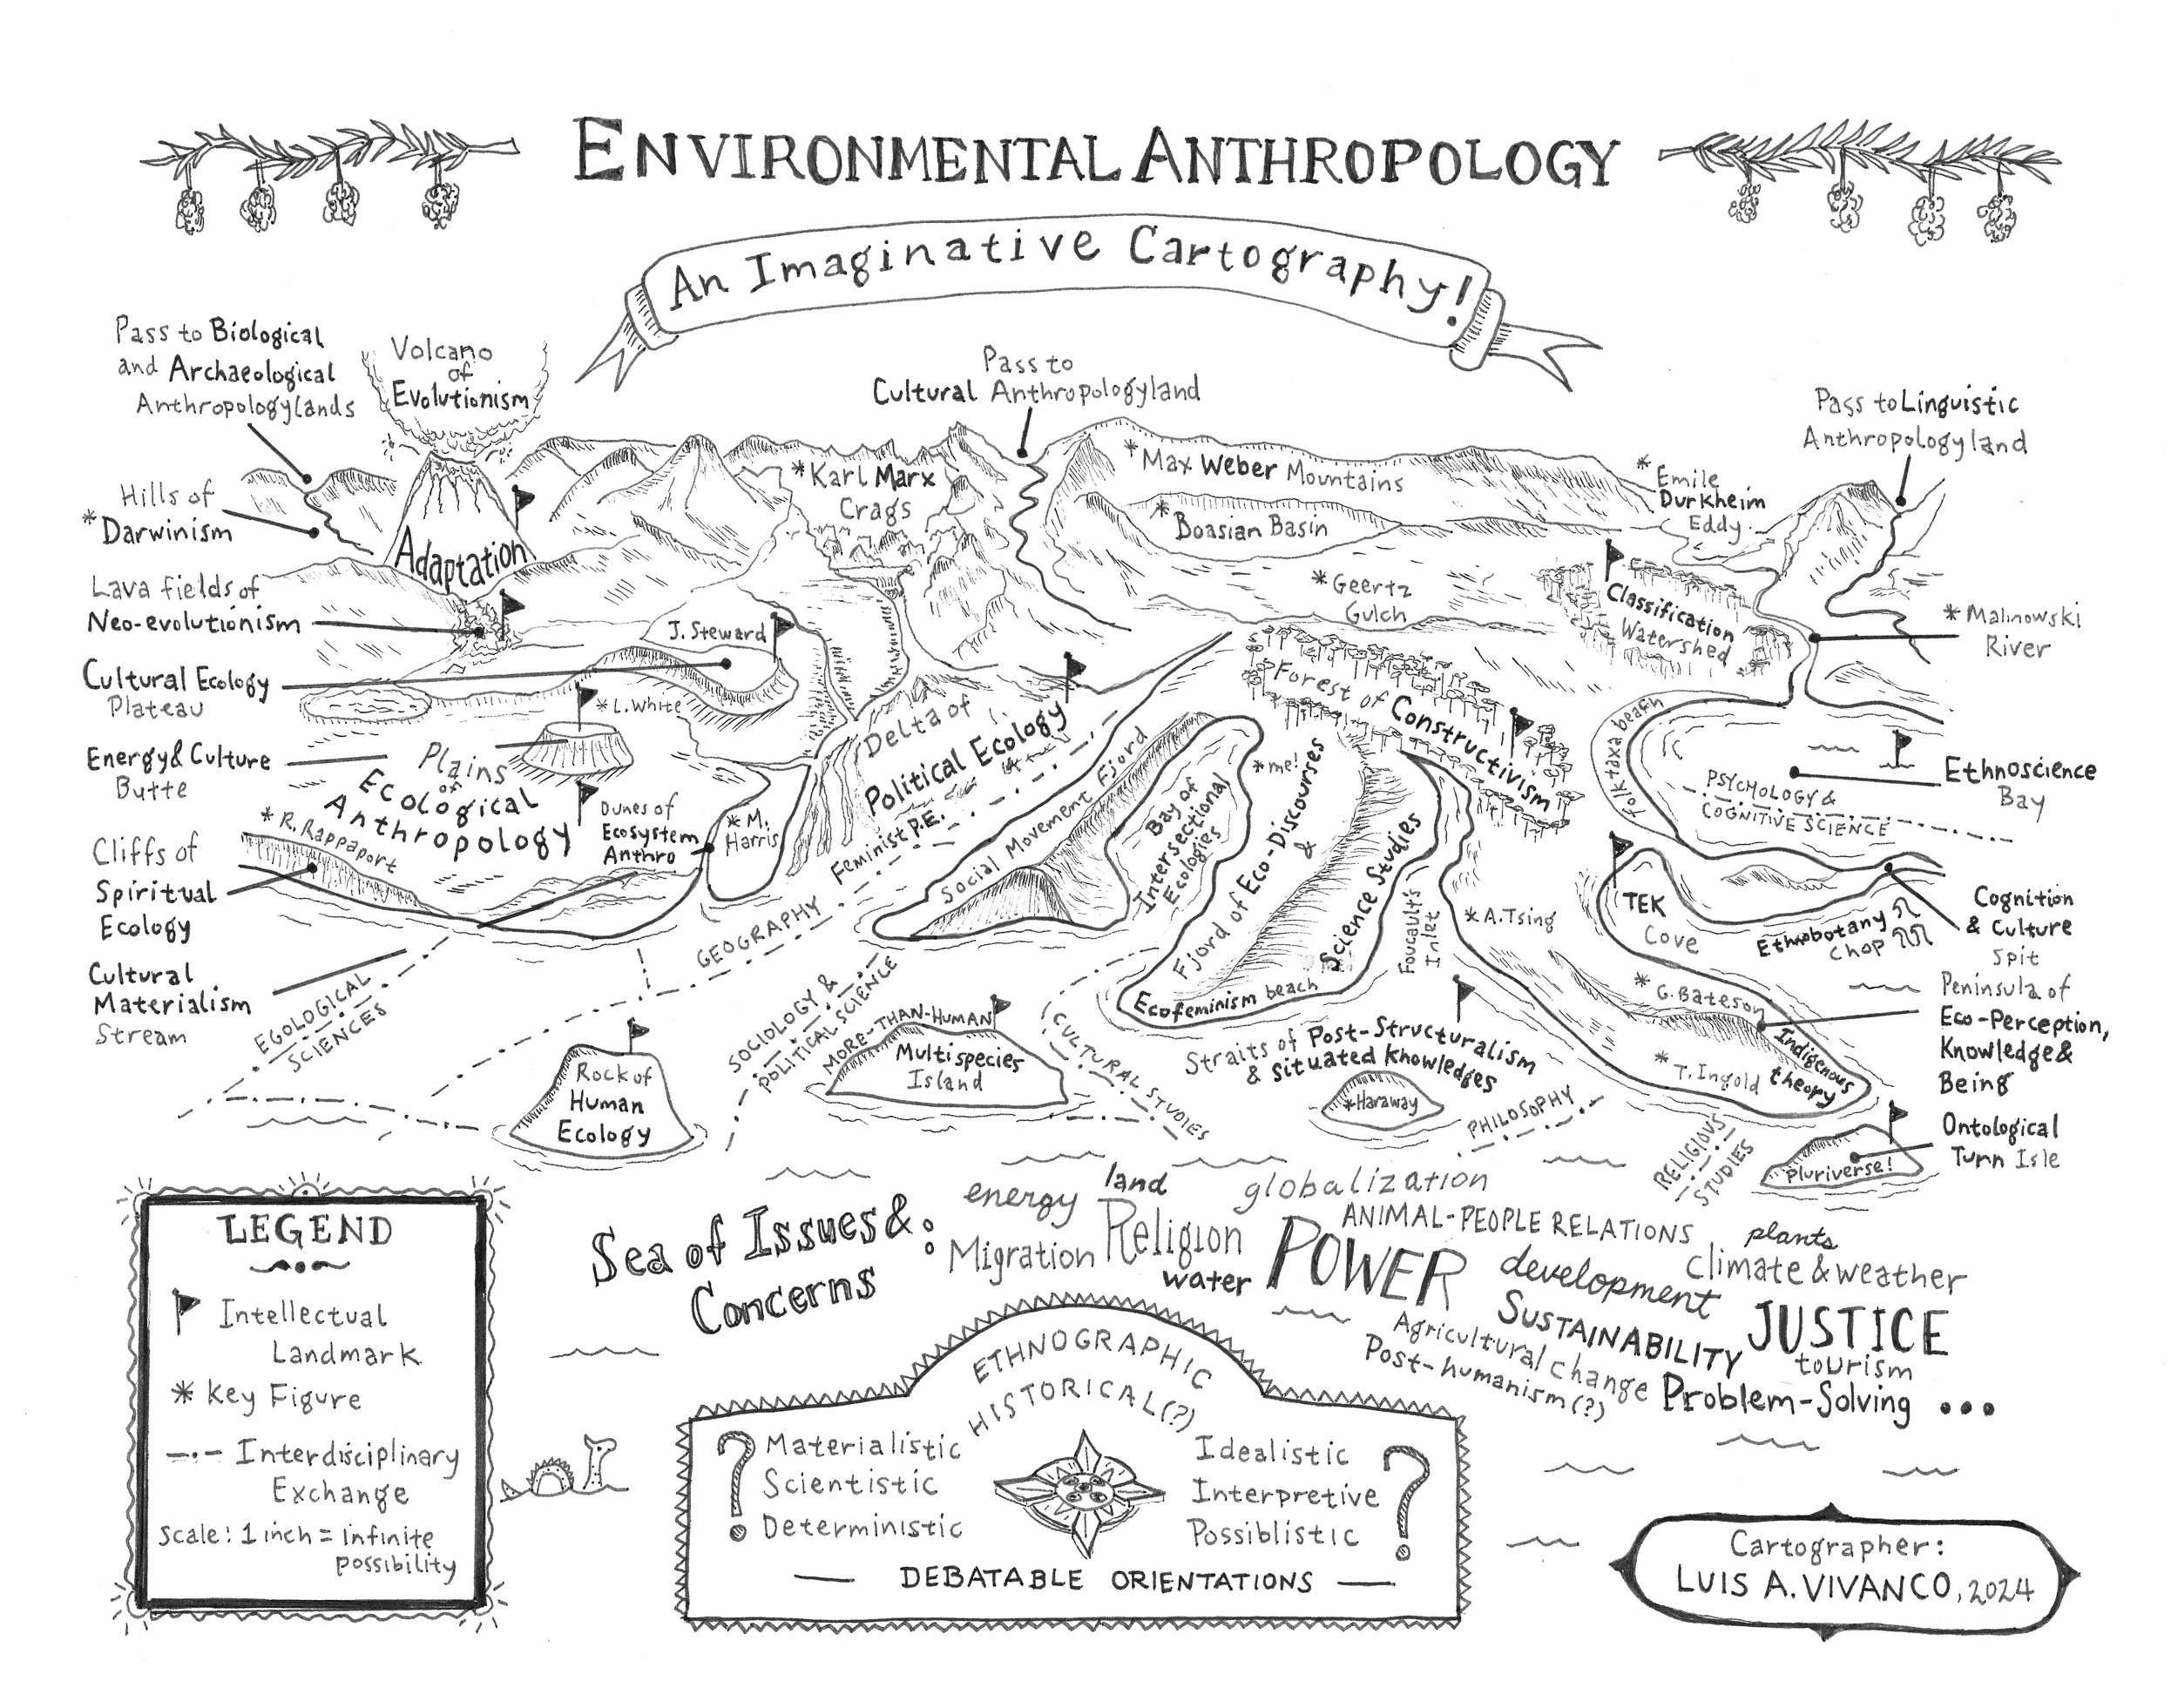 ENVIRONMENTAL ANTHROPOLOGY
An Imaginative Cartography!
Pass to Biological
and Archaeological
Anthropologylands
Volcano
of
Evolutionism
Pass to
Cultural Anthropologyland
Pass to Linguistic
Anthropologyland
Hills of
*Darwinism
Adaptation
*Karl Marx
Crags
*Max Weber Mountains
*Boasian Basin
*Emile
Durkheim
Eddy
Lava fields of
Neo-evolutionism
*Geertz
Gulch
Classification
Watershed
*Malinowski
River
J. Steward
Cultural Ecology
Plateau
*L. White
Delta of
Political Ecology
Forest of
Constructivism
Folk taxa beach
Energy & Culture
Butte
Plains
of
Ecological
Anthropology
Dunes of
Ecosystem
Anthro
*M.
Harris
Feminist P.E.
Social Movement Fjord
Bay of
Intersectional
Ecologies
*me!
Fjord of Eco-Discourses
&
Science Studies
Foucault's
Inlet
*A. Tsing
PSYCHOLOGY &
COGNITIVE SCIENCE
Ethnoscience
Bay
*R. Rappaport
Cliffs of
Spiritual
Ecology
TEK
Cove
Ethnobotany
Chop
Cognition
& Culture
Spit
Cultural
Materialism
Stream
ECOLOGICAL
SCIENCES
GEOGRAPHY
SOCIOLOGY &
POLITICAL SCIENCE
MORE-THAN-HUMAN
Multispecies
Island
Rock of
Human
Ecology
Ecofeminism beach
CULTURAL STUDIES
Straits of Post-Structuralism
& situated knowledges
*Haraway
PHILOSOPHY
*G. Bateson
*T. Ingold
Indigenous
theory
Peninsula of
Eco-Perception,
Knowledge &
Being
RELIGIOUS
STUDIES
Pluriverse!
Ontological
Turn Isle
Sea of Issues &
Concerns :
energy
land
globalization
Migration
Religion
water
POWER
ANIMAL-PEOPLE RELATIONS
plants
climate & weather
development
SUSTAINABILITY
JUSTICE
Agricultural change
tourism
Post-humanism(?)
Problem-Solving ...
LEGEND
Intellectual
Landmark
* Key Figure
Interdisciplinary
Exchange
Scale: 1 inch = infinite
possibility
ETHNOGRAPHIC
HISTORICAL(?)
? Materialistic
Scientistic
Deterministic
Idealistic ?
Interpretive
Possiblistic
— DEBATABLE ORIENTATIONS —
Cartographer:
LUIS A. VIVANCO, 2024